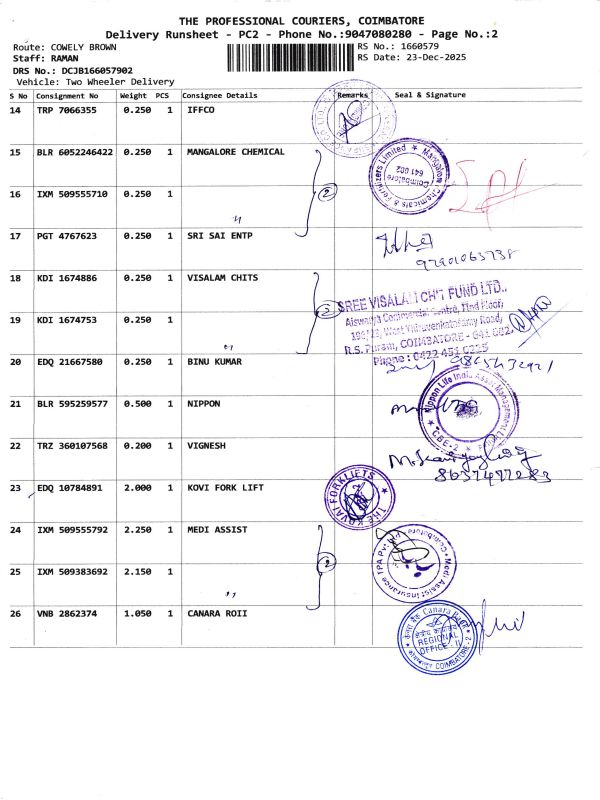 THE PROFESSIONAL COURIERS, COIMBATORE
Delivery Runsheet - PC2 - Phone No.:9047080280 - Page No.:2
Route: COWELY BROWN
RS No.: 1660579
Staff: RAMAN
RS Date: 23-Dec-2025
DRS No.: DCJB166057902
Vehicle: Two Wheeler Delivery
S No Consignment No Weight PCS Consignee Details Remarks Seal & Signature
14 TRP 7066355 0.250 1 IFFCO
15 BLR 6052246422 0.250 1 MANGALORE CHEMICAL
Mangalore Chemicals & Fertilizers Limited
Coimbatore
641 002
16 IXM 509555710 0.250 1
2
17 PGT 4767623 0.250 1 SRI SAI ENTP
18 KDI 1674886 0.250 1 VISALAM CHITS
SREE VISALAM CHIT FUND LTD.,
Aiswarya Commercial Centre, IInd Floor,
R.S. Puram, COIMBATORE - 641 002.
Phone : 0422 451 6225
19 KDI 1674753 0.250 1
20 EDQ 21667580 0.250 1 BINU KUMAR
21 BLR 595259577 0.500 1 NIPPON
Nippon Life India Asset Management Limited
CBE-2
22 TRZ 360107568 0.200 1 VIGNESH
8637497283
23 EDQ 10784891 2.000 1 KOVI FORK LIFT
THE KOVAI FORKLIFTS
24 IXM 509555792 2.250 1 MEDI ASSIST
Medi Assist Insurance TPA Pvt Ltd
Coimbatore
2
25 IXM 509383692 2.150 1
26 VNB 2862374 1.050 1 CANARA ROII
Canara Bank
REGIONAL
OFFICE - II
COIMBATORE - 2